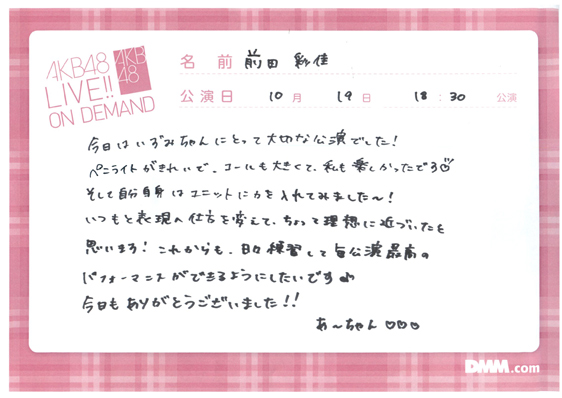 AKB48
LIVE!!
ON DEMAND
AKB
48
名前 前田 彩佳
公演日 10月 19日 18:30 公演
今日はいずみちゃんにとって大切な公演でした!
ペンライトがきれいで、コールも大きくて、私も楽しかったです
そして自分自身はユニットに力を入れてみました〜!
いつもと表現の仕方を変えて、ちょっと理想に近づいたと
思います! これからも、日々練習して毎公演最高の
パフォーマンスができるようにしたいです♪
今日もありがとうございました!!
あ〜ちゃん ♡♡♡
DMM.com